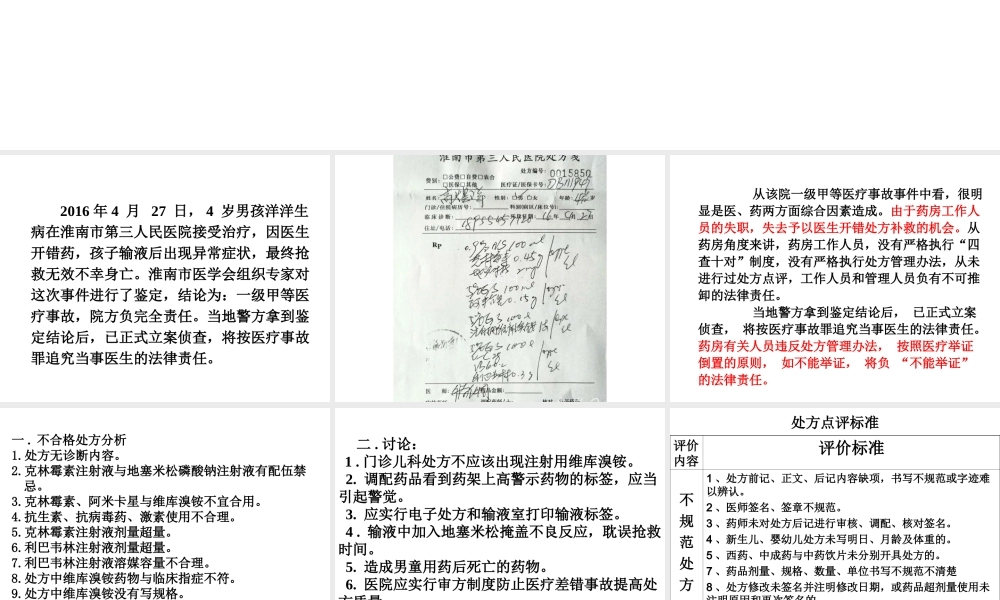 2016 年 4 月 27 日， 4 岁男孩洋洋生
病在淮南市第三人民医院接受治疗，因医生
开错药，孩子输液后出现异常症状，最终抢
救无效不幸身亡。淮南市医学会组织专家对
这次事件进行了鉴定，结论为：一级甲等医
疗事故，院方负完全责任。当地警方拿到鉴
定结论后，已正式立案侦查，将按医疗事故
罪追究当事医生的法律责任。
淮南市第三人民医院处方笺
处方编号：0015850
费别：□公费□自费□农合
□医保□其他 医疗证/医保卡号：
姓名： 性别：□男 □女 年龄： 岁
门诊/住院病历号： 科别(病区/床位号)：
临床诊断： 开具日期：
住址/电话：
Rp
0.9% NS 100ml
医 师： 药品金额：
从该院一级甲等医疗事故事件中看，很明
显是医、药两方面综合因素造成。由于药房工作人
员的失职，失去予以医生开错处方补救的机会。从
药房角度来讲，药房工作人员，没有严格执行“四
查十对”制度，没有严格执行处方管理办法，从未
进行过处方点评，工作人员和管理人员负有不可推
卸的法律责任。
当地警方拿到鉴定结论后， 已正式立案
侦查， 将按医疗事故罪追究当事医生的法律责任。
药房有关人员违反处方管理办法， 按照医疗举证
倒置的原则， 如不能举证， 将负 “不能举证”
的法律责任。
一 . 不合格处方分析
1. 处方无诊断内容。
2. 克林霉素注射液与地塞米松磷酸钠注射液有配伍禁
忌。
3. 克林霉素、阿米卡星与维库溴铵不宜合用。
4. 抗生素、抗病毒药、激素使用不合理。
5. 克林霉素注射液剂量超量。
6. 利巴韦林注射液剂量超量。
7. 利巴韦林注射液溶媒容量不合理。
8. 处方中维库溴铵药物与临床指症不符。
9. 处方中维库溴铵没有写规格。
二 . 讨论：
1 . 门诊儿科处方不应该出现注射用维库溴铵。
2. 调配药品看到药架上高警示药物的标签，应当
引起警觉。
3. 应实行电子处方和输液室打印输液标签。
4 . 输液中加入地塞米松掩盖不良反应，耽误抢救
时间。
5. 造成男童用药后死亡的药物。
6. 医院应实行审方制度防止医疗差错事故提高处
方质量
处方点评标准
评价
内容
评价标准
不
规
范
处
方
1 、处方前记、正文、后记内容缺项，书写不规范或字迹难
以辨认。
2 、医师签名、签章不规范。
3 、药师未对处方后记进行审核、调配、核对签名。
4 、新生儿、婴幼儿处方未写明日、月龄及体重的。
5 、西药、中成药与中药饮片未分别开具处方的。
7 、药品剂量、规格、数量、单位书写不规范不清楚
8 、处方修改未签名并注明修改日期，或药品超剂量使用未
注明原因和再次签名的